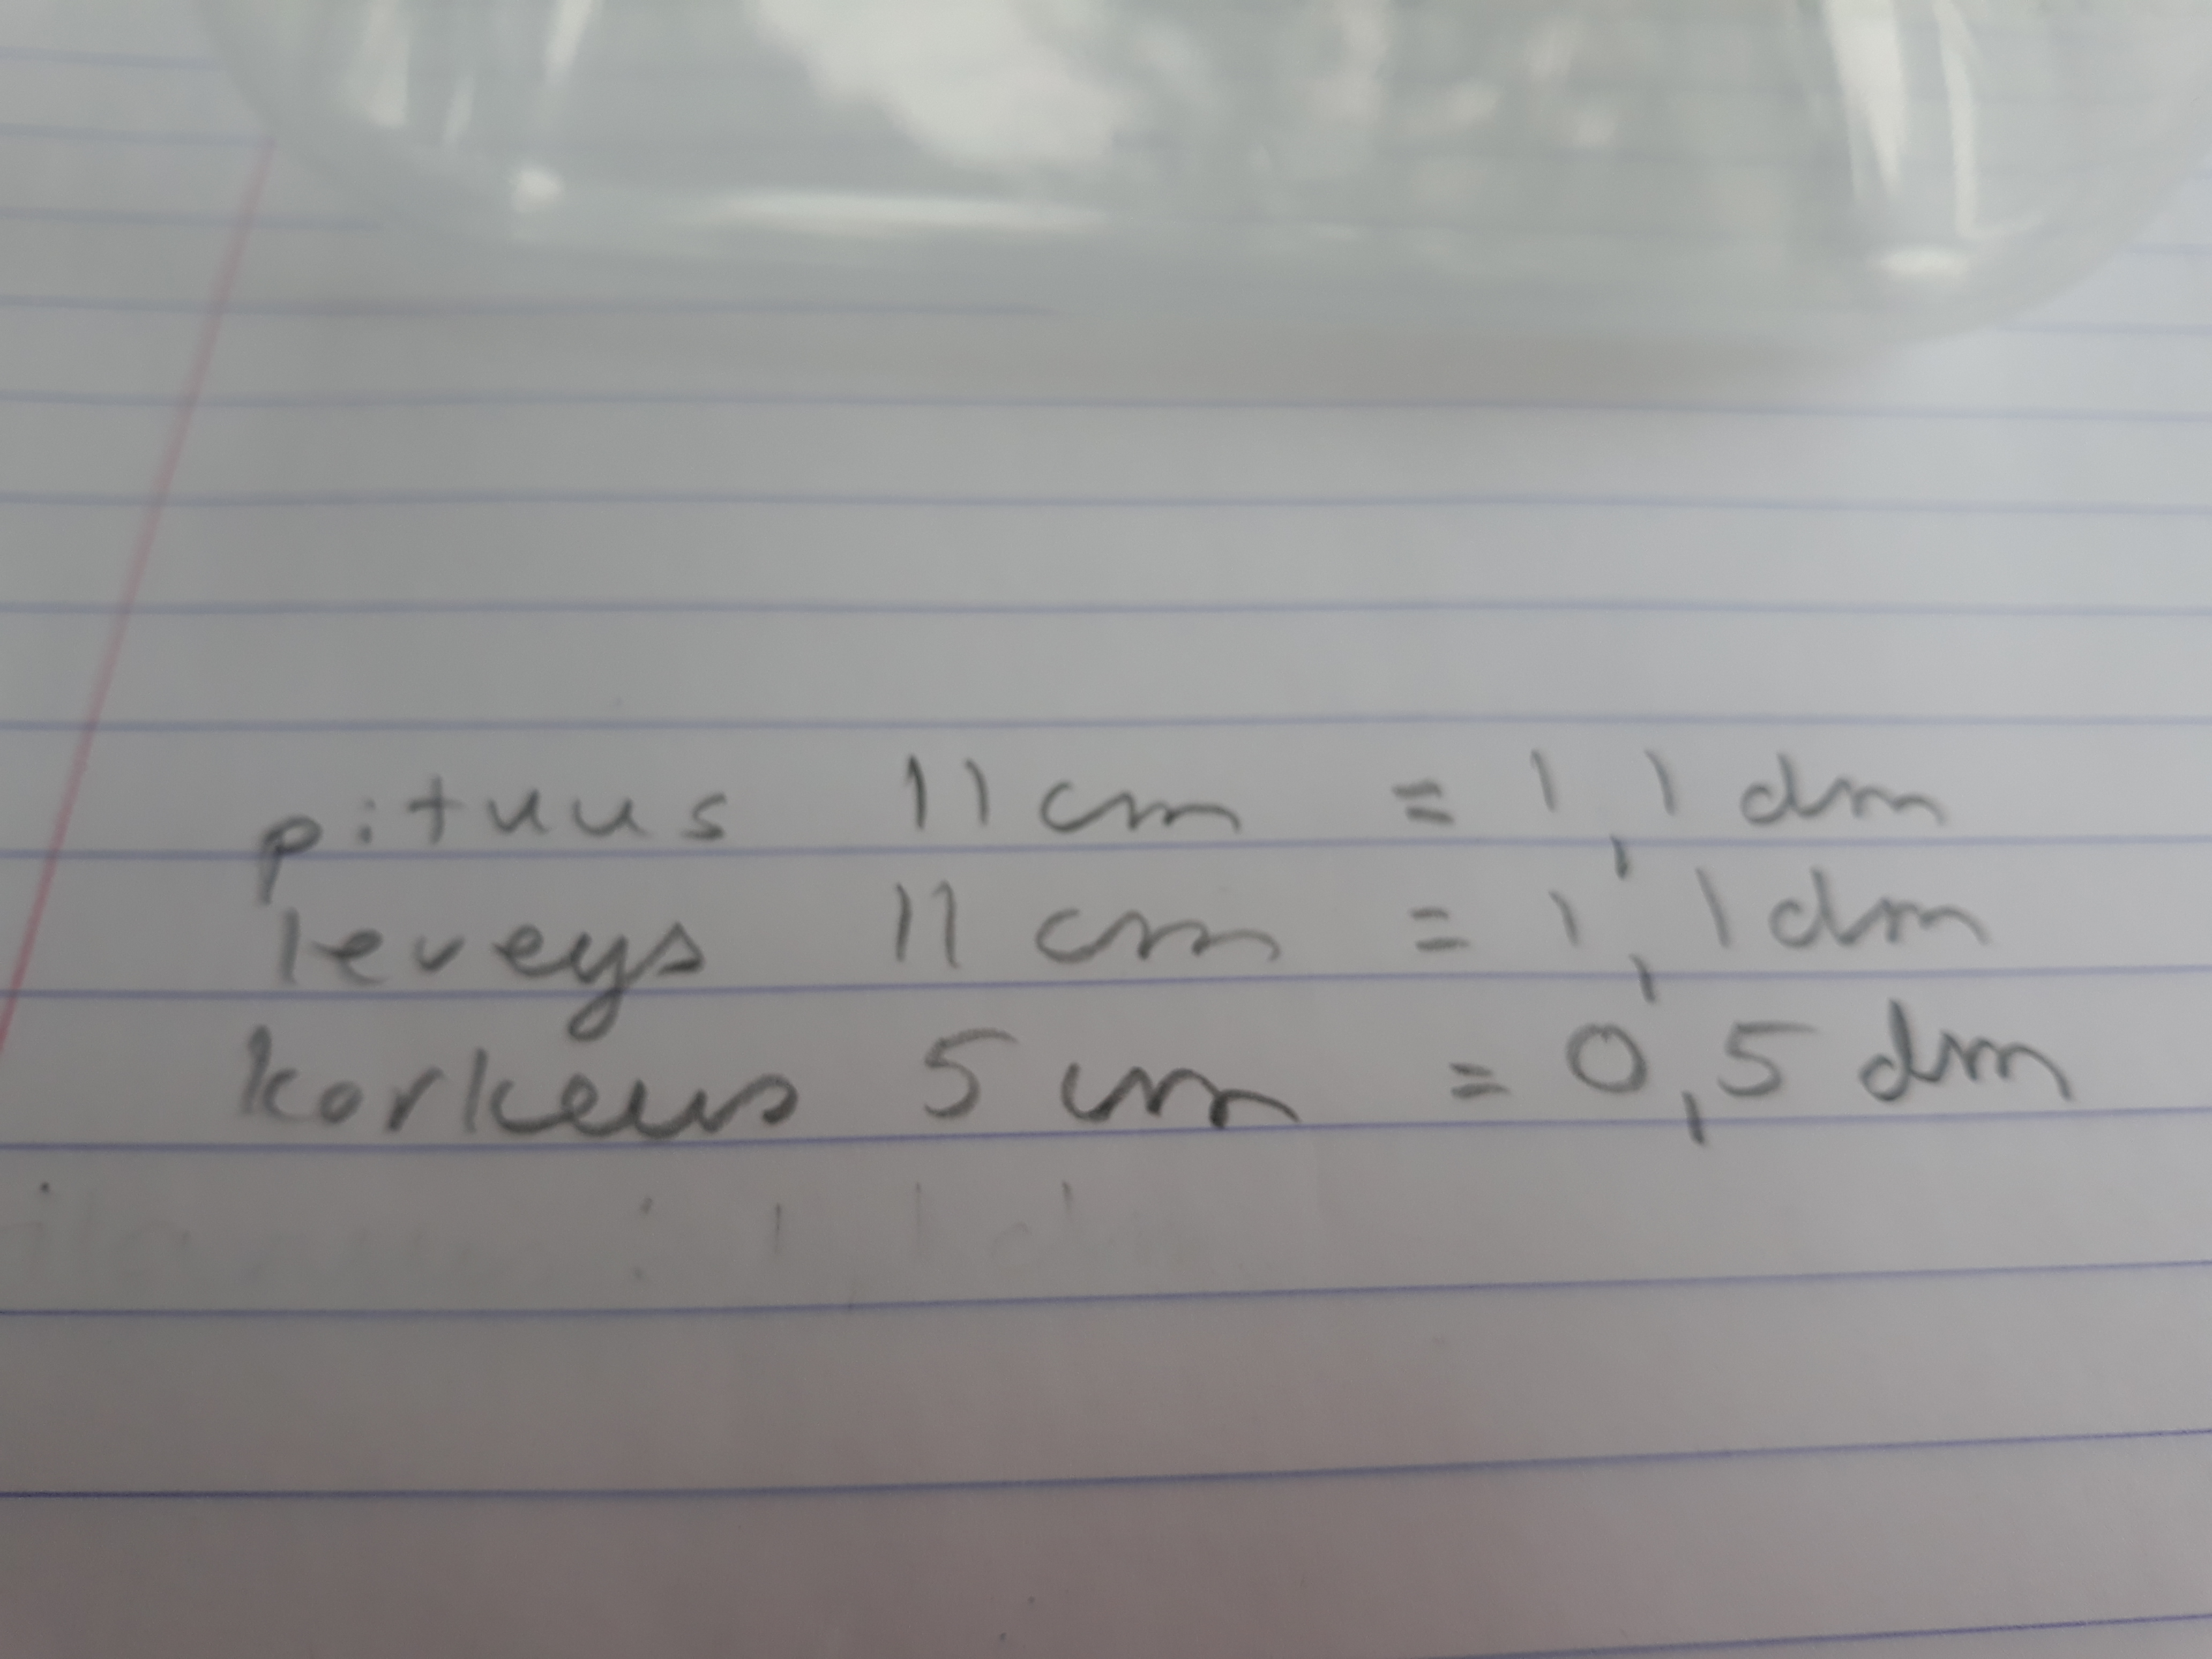 pituus 11 cm = 1,1 dm
leveys 11 cm = 1,1 dm
korkeus 5 cm = 0,5 dm